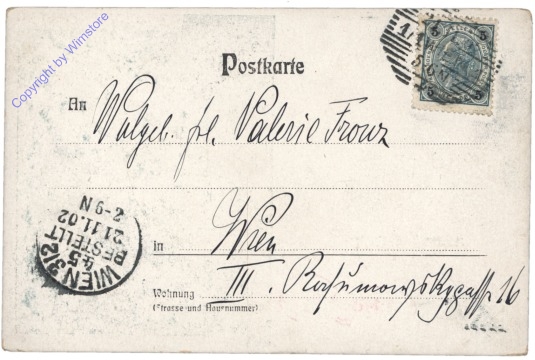 Copyright by Wimstore
Postkarte
5 5
An
Wolgeb. frl. Valerie Fronz
Wien
in
III. Rasumowskygasse 16
Wohnung
(Strasse und Hausnummer)
WIEN 3/2
45
BESTELLT
21.11.02
2-9 N